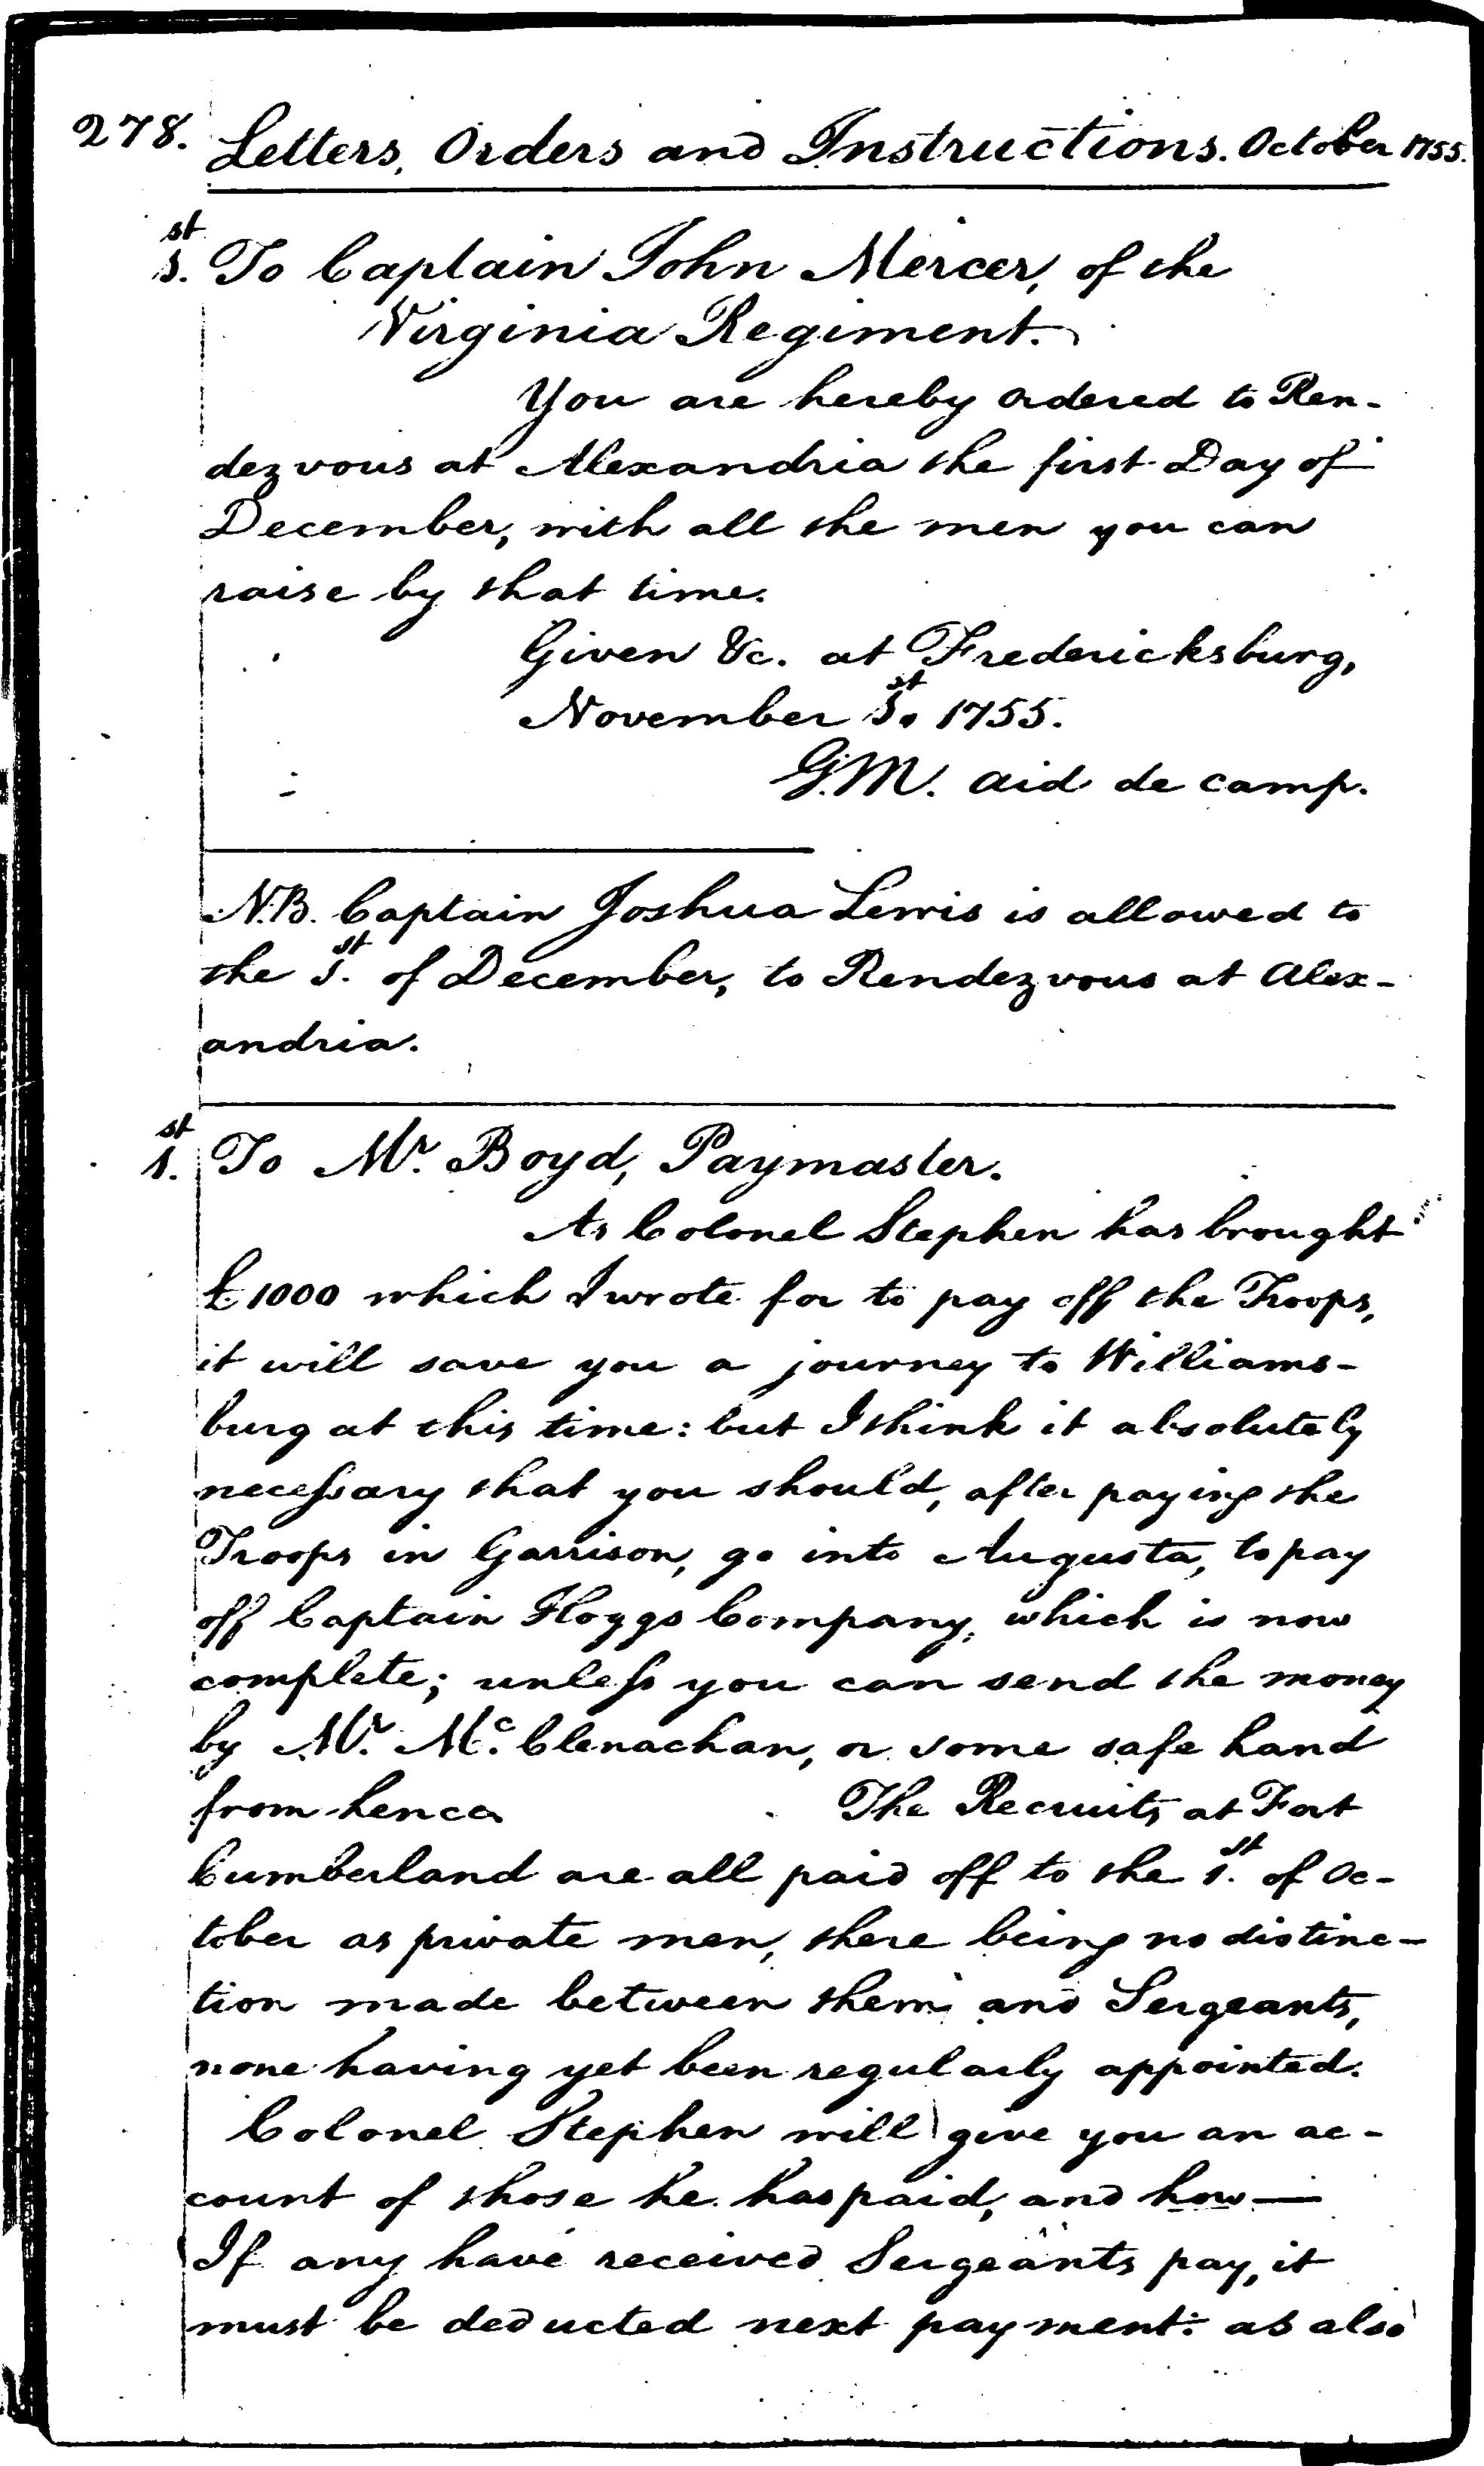 278. Letters, Orders and Instructions. October 1755.
1st. To Captain John Mercer, of the
Virginia Regiment.
You are hereby ordered to Ren-
dezvous at Alexandria the first Day of
December, with all the men you can
raise by that time.
Given &c. at Fredericksburg,
November 1st. 1755.
G.M. aid de camp.
N.B. Captain Joshua Lewis is allowed to
the 1st. of December, to Rendezvous at Alex-
andria.
1st. To Mr. Boyd, Paymaster.
As Colonel Stephen has brought
£1000 which I wrote for to pay off the Troops,
it will save you a journey to Williams-
burg at this time: but I think it absolutely
necessary that you should, after paying the
Troops in Garrison, go into Augusta, to pay
off Captain Hoggs Company, which is now
complete; unless you can send the money
by Mr. Mc. Clenachan, or some safe hand
from hence. The Recruits at Fort
Cumberland are all paid off to the 1st. of Oc-
tober as private men, there being no distinc-
tion made between them and Sergeants,
none having yet been regularly appointed.
Colonel Stephen will give you an ac-
count of those he has paid, and how—
If any have received Sergeants pay, it
must be deducted next payment: as also